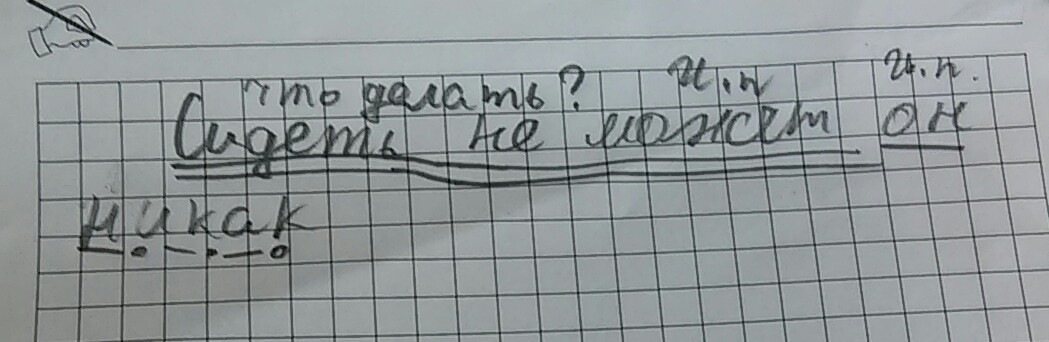 что делать? и.п и.п.
Сидеть не может он
никак